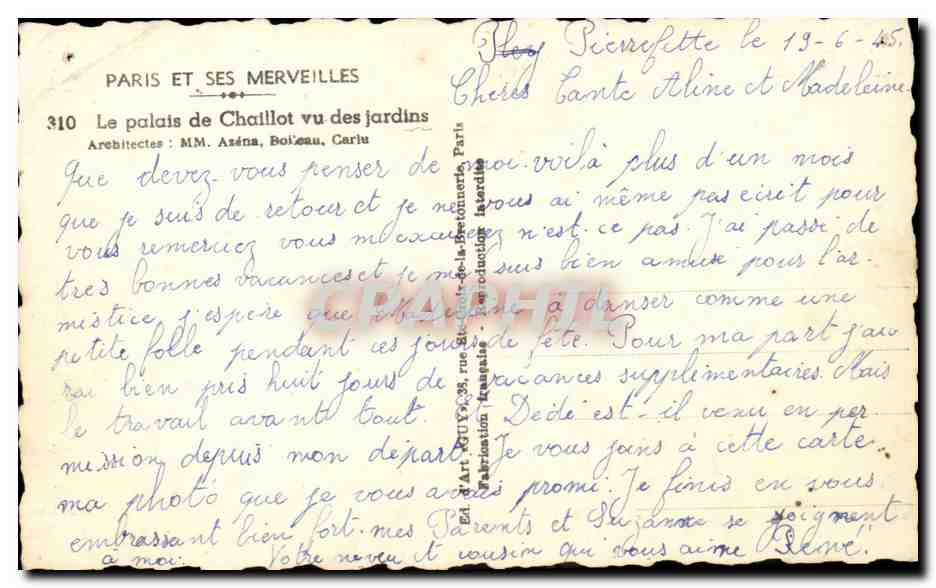 PARIS ET SES MERVEILLES
310 Le palais de Chaillot vu des jardins
Architectes : MM. Azéna, Boileau, Carlu
Ed. d'Art "GUY", 36, rue Ste-Croix-de-la-Bretonnerie, Paris
Fabrication française - Reproduction interdite
Pierrefitte le 19-6-45.
Chères Tante Aline et Madeleine.
Que devez-vous penser de moi. voilà plus d'un mois
que je suis de retour et je ne vous ai même pas ecrit pour
vous remerciez vous m'excuserez n'est-ce pas. J'ai passi de
très bonnes vacances et je me suis bien amuse pour l'ar-
mistice, j'espère que Madeleine à danser comme une
petite folle pendant ces jours de fête. Pour ma part j'au
rai bien pris huit jours de vacances supplémentaires. Mais
le travail avant tout. Dédé est-il venu en per
mission depuis mon départ. Je vous joins à cette carte
ma photo que je vous avais promi. Je finis en vous
embrassant bien fort. mes Parents et Suzanne se joignent
à moi. Votre neveu et cousin qui vous aime Hervé.
CPAPHIL